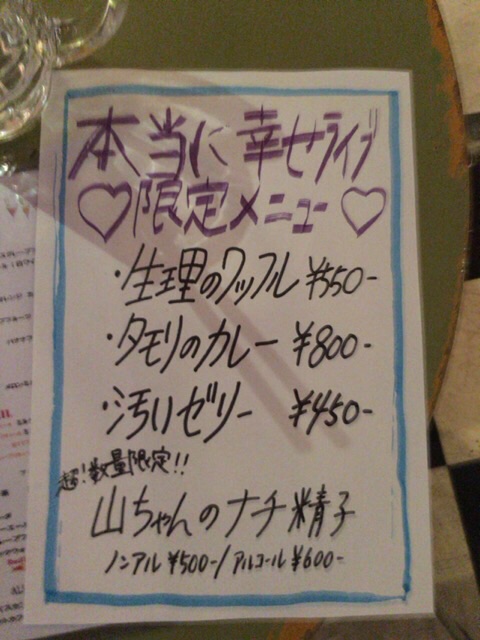 本当に幸せライブ
♡限定メニュー♡
・生理のワッフル ¥550-
・タモリのカレー ¥800-
・汚いゼリー ¥450-
超!数量限定!!
山ちゃんのナチ精子
ノンアル ¥500-/アルコール ¥600-